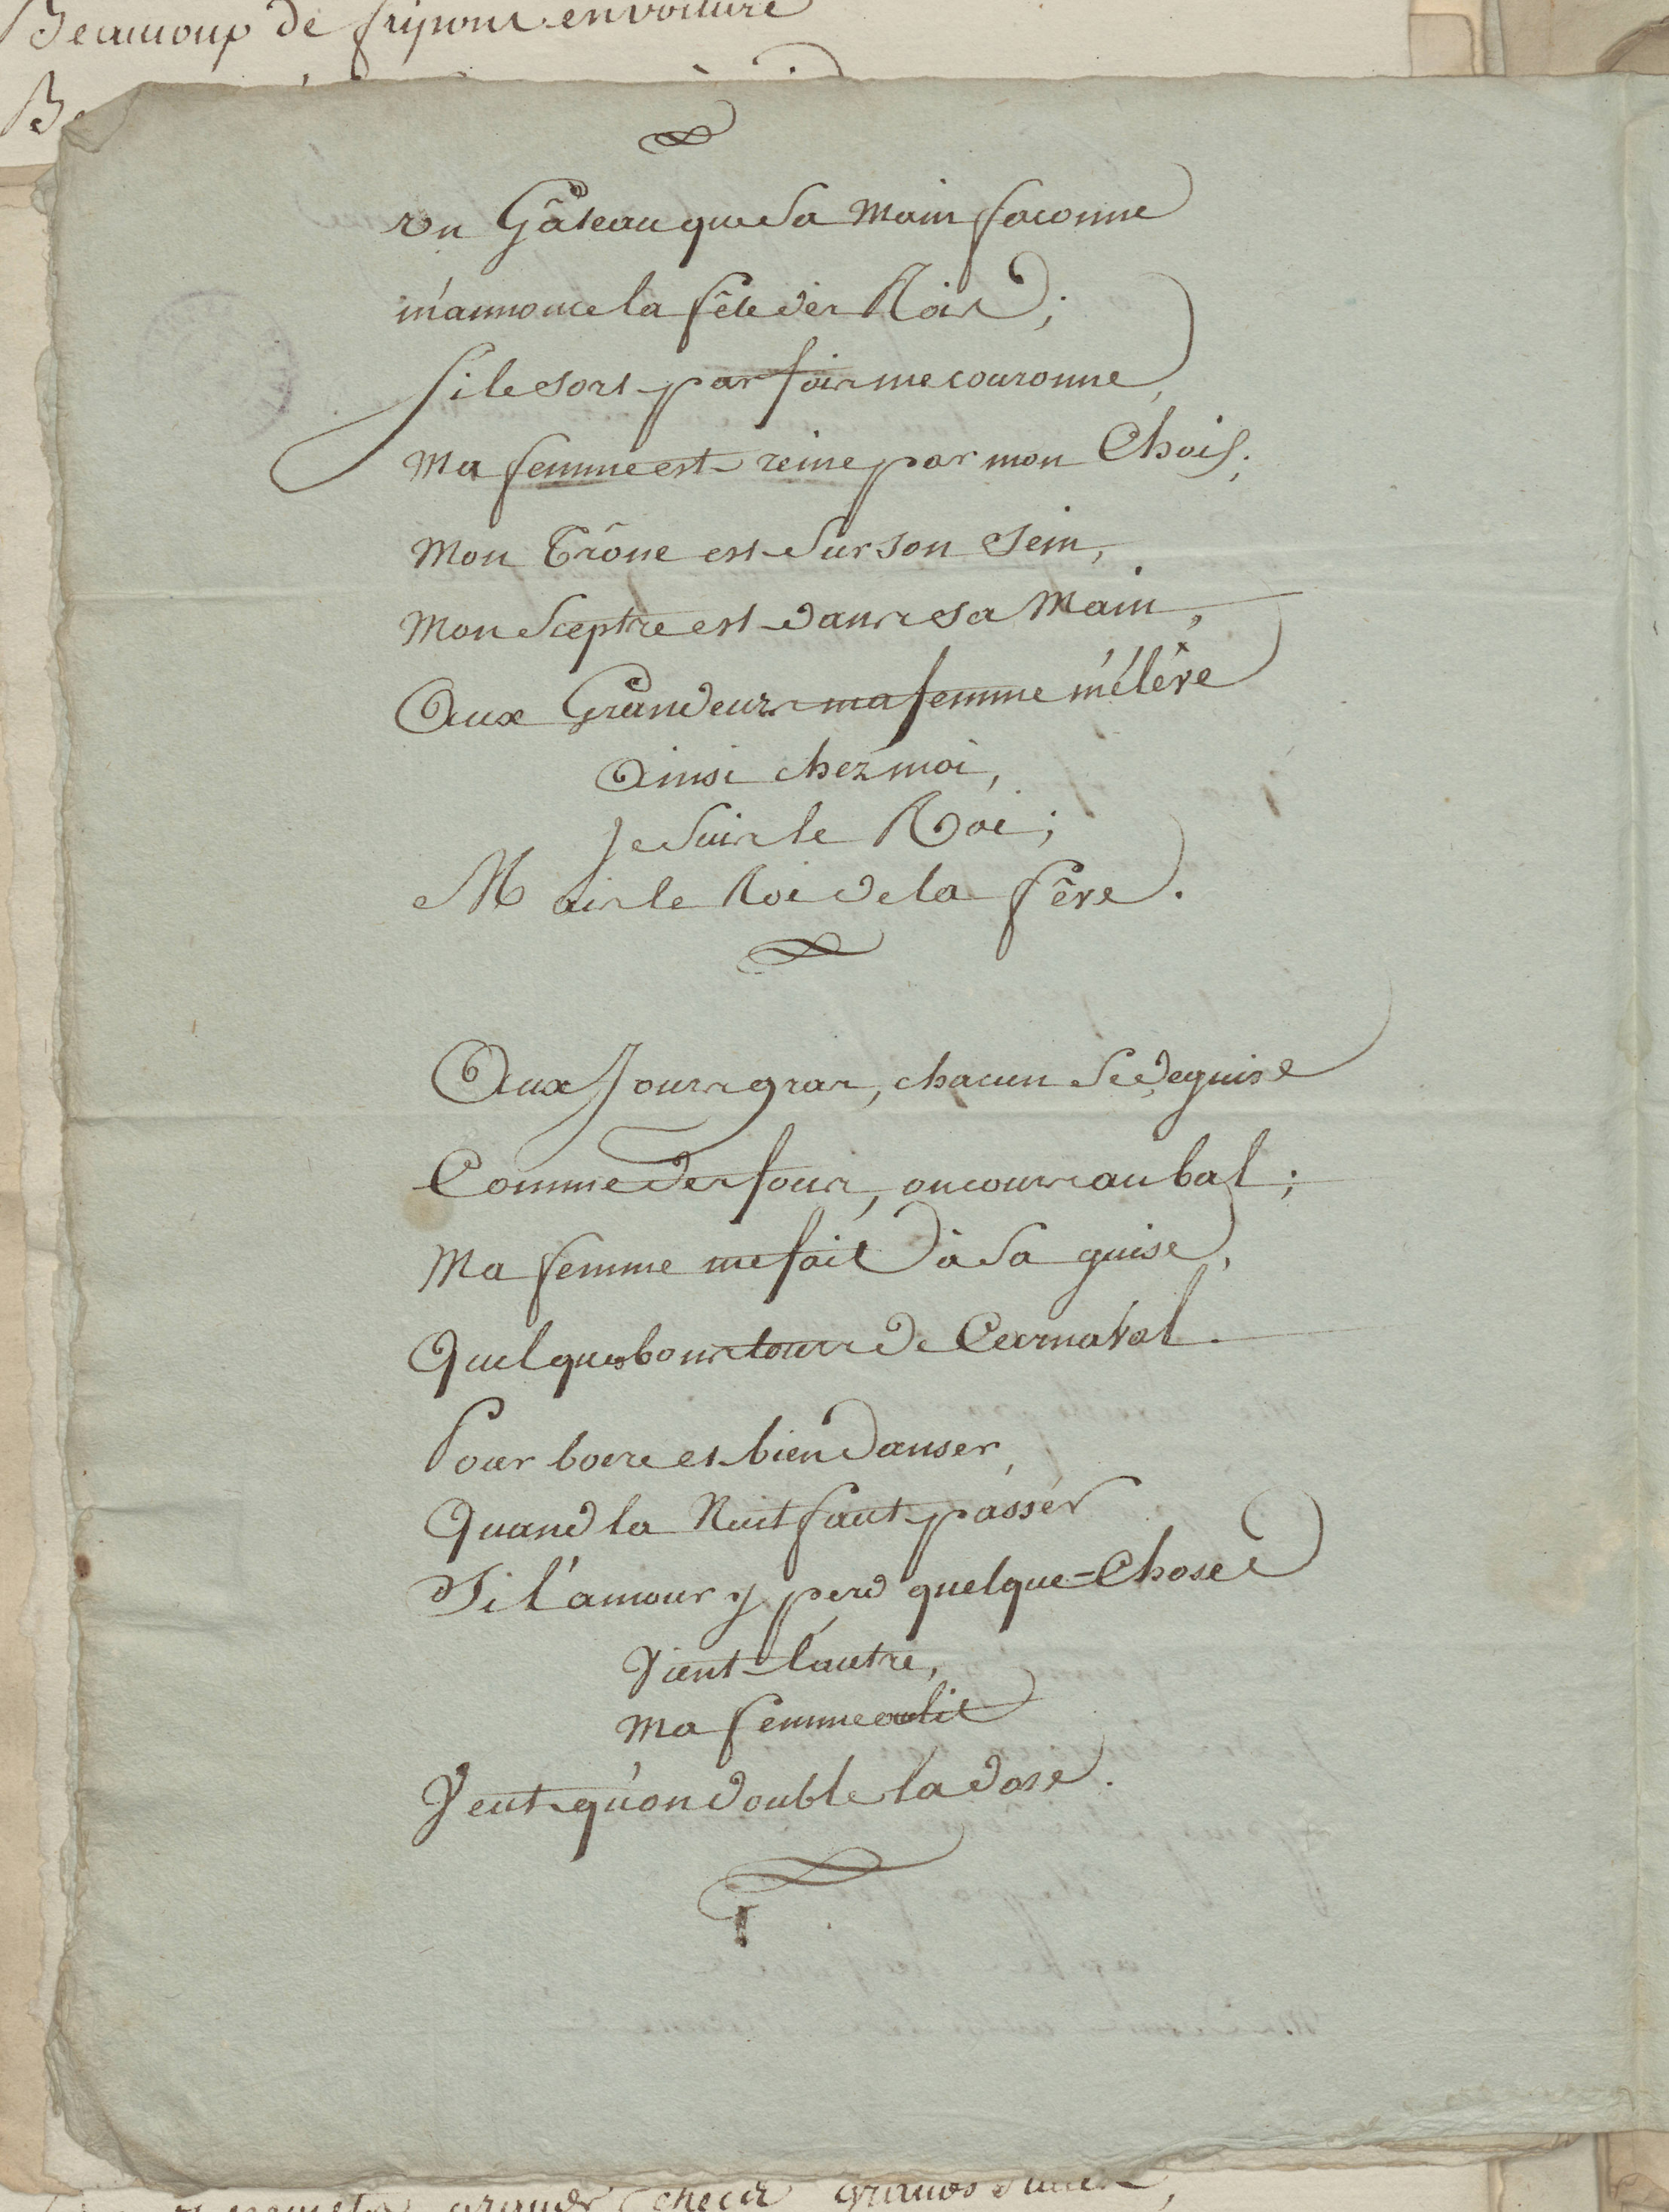 Beaucoup de fripons en voiture
un Gâteau que sa main faconne
m'annonce la fête des Rois;
si le sort par fois me couronne,
Ma femme est reine par mon Choix;
Mon Trône est sur son sein,
Mon Sceptre est dans sa Main,
Aux Grandeurs ma femme m'élêve
Ainsi chez moi,
Je suis le Roi;
Mais le Roi de la fêve.
Aux Jours gras, chacun se deguise
Comme des fous, on cours au bal;
Ma femme me fait à sa guise,
Quelques bons tours de Carnaval.
Pour boire et bien danser,
Quand la Nuit faut passer
Si l'amour y perd quelque=Chose
Vient l'autre,
Ma femme au lit
Veut qu'on double la dose.